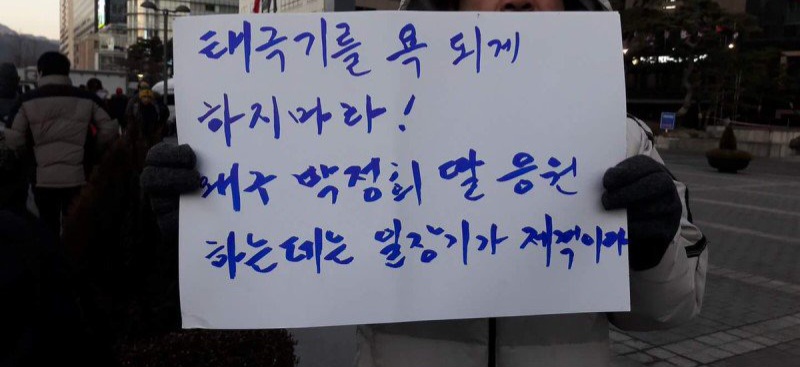 태극기를 욕 되게
하지마라!
왜구 박정희 딸 응원
하는데는 일장기가 제격이다